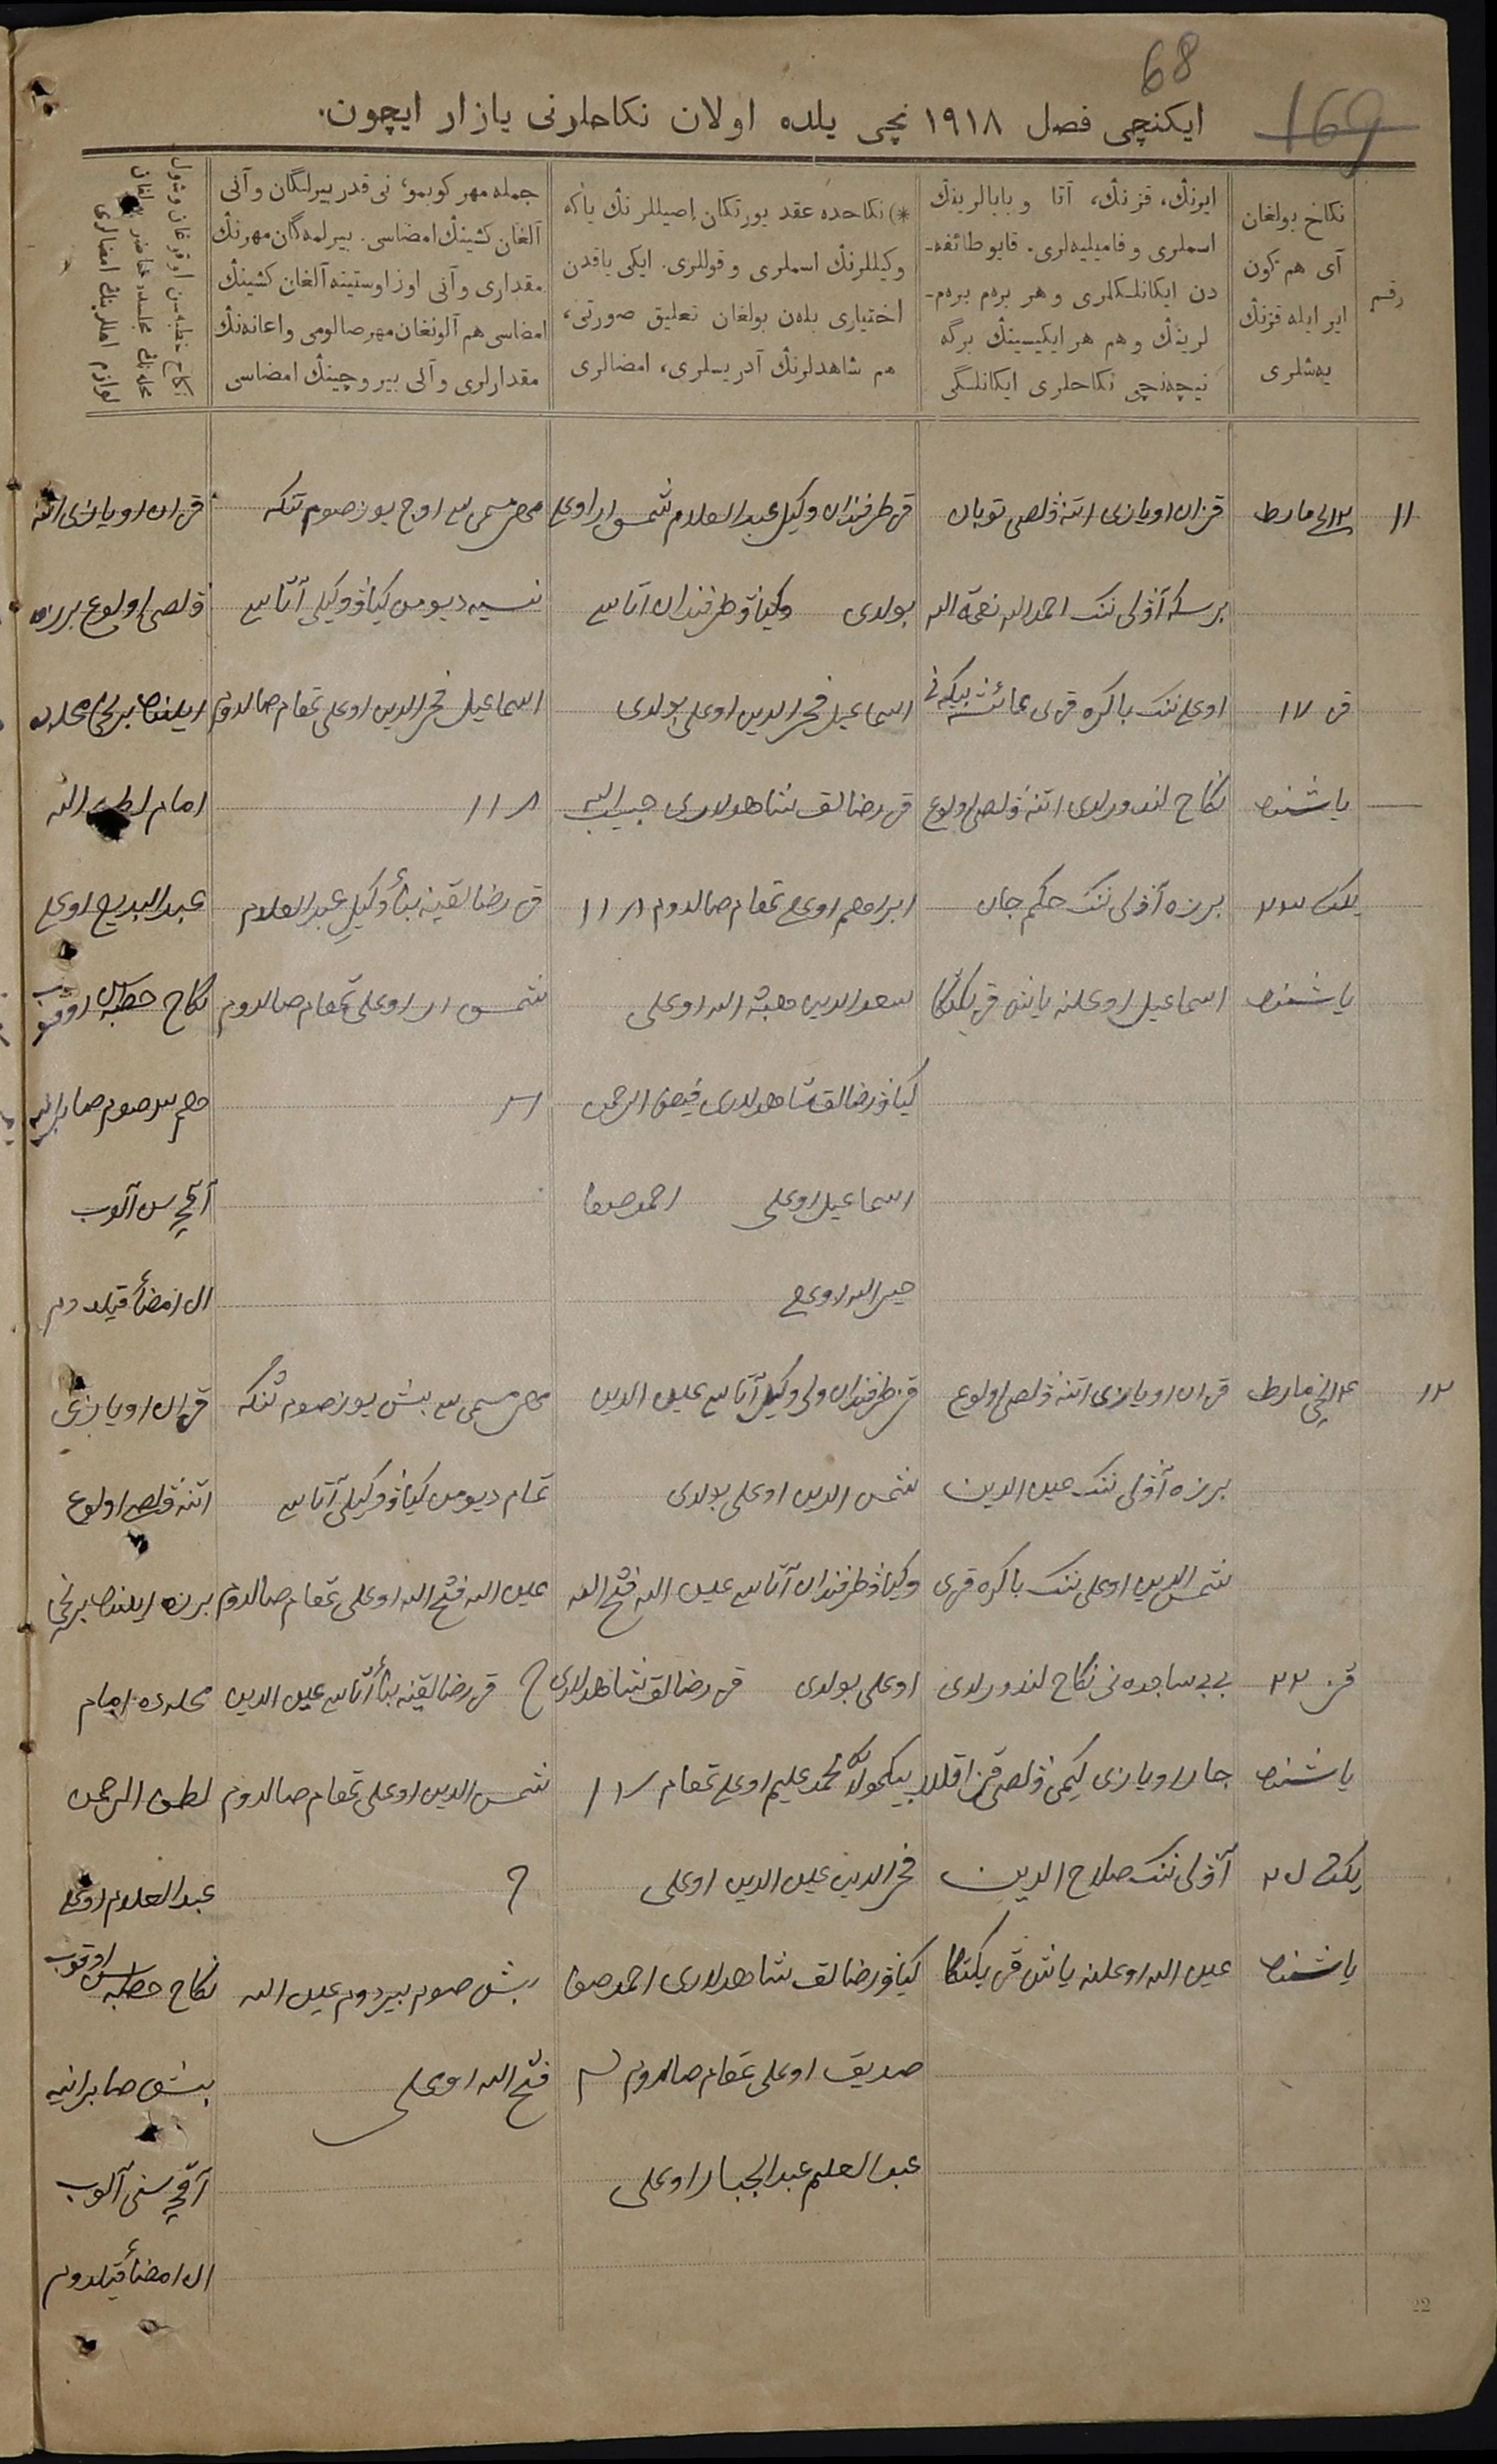 68
169
ایکنچی فصل ۱۹۱۸ نچی یلده اولان نکاحلرنی یازار ایچون.
رقم
نکاح بولغان
آی هم کون
ایر ایله قزنڭ
یەشلری
ایرنڭ، قزنڭ، آتا و بابالرینڭ
اسملری و فامیلیەلری. قایو طائفە-
دن ایکانلکلری و هر برەم برەم-
لرینڭ و هم هر ایکیسینڭ برگە
نیچەنچی نکاحلری ایکانلگی
*) نکاحده عقد یورتکان اصیللرنڭ یاکە
وکیللرنڭ اسملری و قوللری. ایکی یاقدن
اختیاری بلەن بولغان تعلیق صورتی،
هم شاهدلرنڭ آدریسلری، امضالری
جمله مهر کوبمو، نی قدر بیرلگان و آنی
آلغان کشینڭ امضاسی. بیرلمەگان مهرنڭ
مقداری و آنی اوز اوستینە آلغان کشینڭ
امضاسی هم آلونغان مهر صالومی و اعانەنڭ
مقدارلری و آنی بیروچینڭ امضاسی
نکاح خطبەسن اوقوغان و شول
محلەنڭ مجلسده حاضر بولغان
لوازم اهللرینڭ امضالری
۱۱
۱۲ نچی مارط
قزان اویازی اتنه ولصی توبان
قز طرفندان وکیل عبد العلام شمس اوغلی
مهر مسمی سی اوچ یوز صوم تنکه
قزان اویازی اتنه
برسکه آولی ننک احمد الله نعمة الله
بولدی وکیاو طرفندان آتاسی
نسیه دیومن کیاو وکیلی آتاسی
ولصی اولوغ برزه
قز ۱۷
اوغلی ننک باکره قزی عائشه بیکه نی
اسماعیل فخر الدین اوغلی بولدی
اسماعیل فخر الدین اوغلی تمغام صالدوم
ایلنده برنچی محله ده
یاشنده
نکاح لندورلدی اتنه ولصی اولوغ
قز رضالق شاهدلاری حبیب الله
امام لطف الله
یکت ۲۳
برزه آولی ننک حکم جان
ابراهیم اوغلی تمغام صالدوم
قز رضالقینه بناء وکیل عبد العلام
عبد البدیع اوغلی
یاشنده
اسماعیل اوغلینه یاش قز یکتکا
سعد الدین هبة الله اوغلی
شمس اوغلی تمغام صالدوم
نکاح خطبه سن اوقوب
کیاو رضالق شاهدلاری فیض الرحمن
اسماعیل اوغلی احمد صفا
آقچه سن آلوب
خیر الله اوغلی
امضاء قیلدوم
۱۲
۱۴ نچی مارط
قزان اویازی اتنه ولصی اولوغ
قز طرفندان ولی وکیل آتاسی عین الدین
مهر مسمی سی بیش یوز صوم تنکه
قزان اویازی
برزه آولی ننک عین الدین
شمس الدین اوغلی بولدی
تمام دیومن کیاو وکیلی آتاسی
اتنه ولصی اولوغ
شمس الدین اوغلی ننک باکره قزی
وکیاو طرفندان آتاسی عین الله فتح الله
عین الله فتح الله اوغلی تمغام صالدوم
برزه ایلنده برنچی
قز ۲۲
بی بی ساجده نی نکاح لندورلدی
اوغلی بولدی قز رضالق شاهدلاری
قز رضالقینه بناء آتاسی عین الدین
محلده امام
یاشنده
اویازی کیمی ولصی قزاقلار
بیکمولا محمد علیم اوغلی تمغام
شمس الدین اوغلی تمغام صالدوم
لطف الرحمن
یکت ۲۰
آولی ننک صلاح الدین
فخر الدین عین الدین اوغلی
عبد العلام اوغلی
یاشنده
عین الله اوغلینه یاش قز یکتکا
کیاو رضالق شاهدلاری احمد صفا
بیش صوم بیردوم عین الله
نکاح خطبه سن اوقوب
صدیق اوغلی تمغام صالدوم
فتح الله اوغلی
بیش صابرانیه
عبد العلیم عبد الجبار اوغلی
آقچه سنی آلوب
امضاء قیلدوم
22